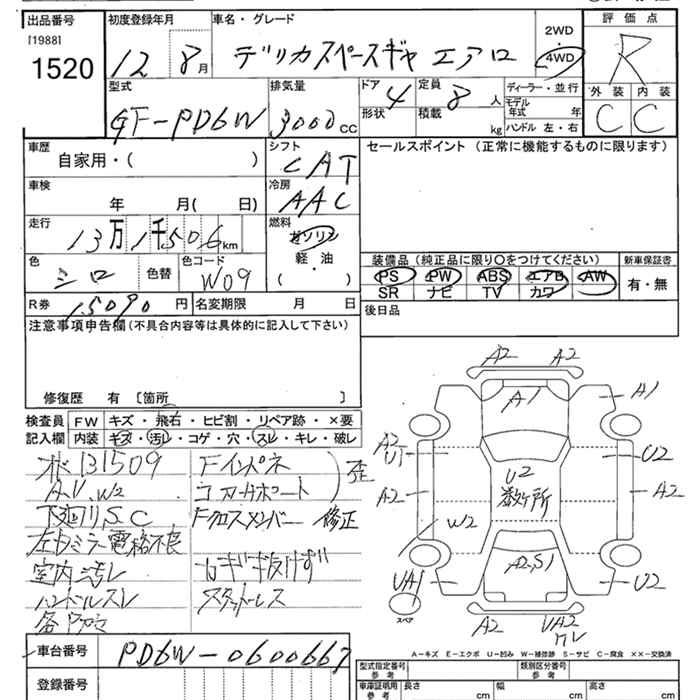 出品番号
[1988]
1520
初度登録年月
12 8月
車名・グレード
デリカスペースギヤ エアロ
2WD
4WD
評価点
R
外装 内装
C C
型式
GF-PD6W
排気量
3000CC
ドア 4
形状
定員 8人
積載 kg
ディーラー・並行
モデル年式 年
ハンドル 左・右
車歴
自家用・( )
シフト
CAT
セールスポイント (正常に機能するものに限ります)
車検
年 月( 日)
冷房
AAC
走行
13万1千506km
燃料
ガソリン
軽・油
( )
色
シロ
色替
色コード
W09
装備品(純正品に限り○をつけてください)
PS PW ABS エアB AW
SR ナビ TV カワ
新車保証書
有・無
R券
15090円
名変期限 月 日
後日品
注意事項申告欄(不具合内容等は具体的に記入して下さい)
修復歴 有 [箇所 ]
検査員記入欄
FW キズ・飛石・ヒビ割・リペア跡・×要
内装 キズ・汚レ・コゲ・穴・スレ・キレ・破レ
131509
A.U.W2
下廻りS.C
左ドミラー電格不良
室内汚レ
ハンドルスレ
Fインパネ
コアサポート
歪
Fクロスメンバー 修正
カギギ抜けず
スタッドレス
A2 A2
A1
A1
A2
U1
U2
A2
U2
数ヶ所
A2
W2
UA1
A2.S1
U2
スペア
A2
UA2
ワレ
A-キズ E-エクボ U-凹み W-補修跡 S-サビ C-腐食 ××-交換済
車台番号
PD6W-0600667
登録番号
型式指定番号
参考
類別区分番号
参考
車庫証明用
参考
長さ cm
幅 cm
高さ cm